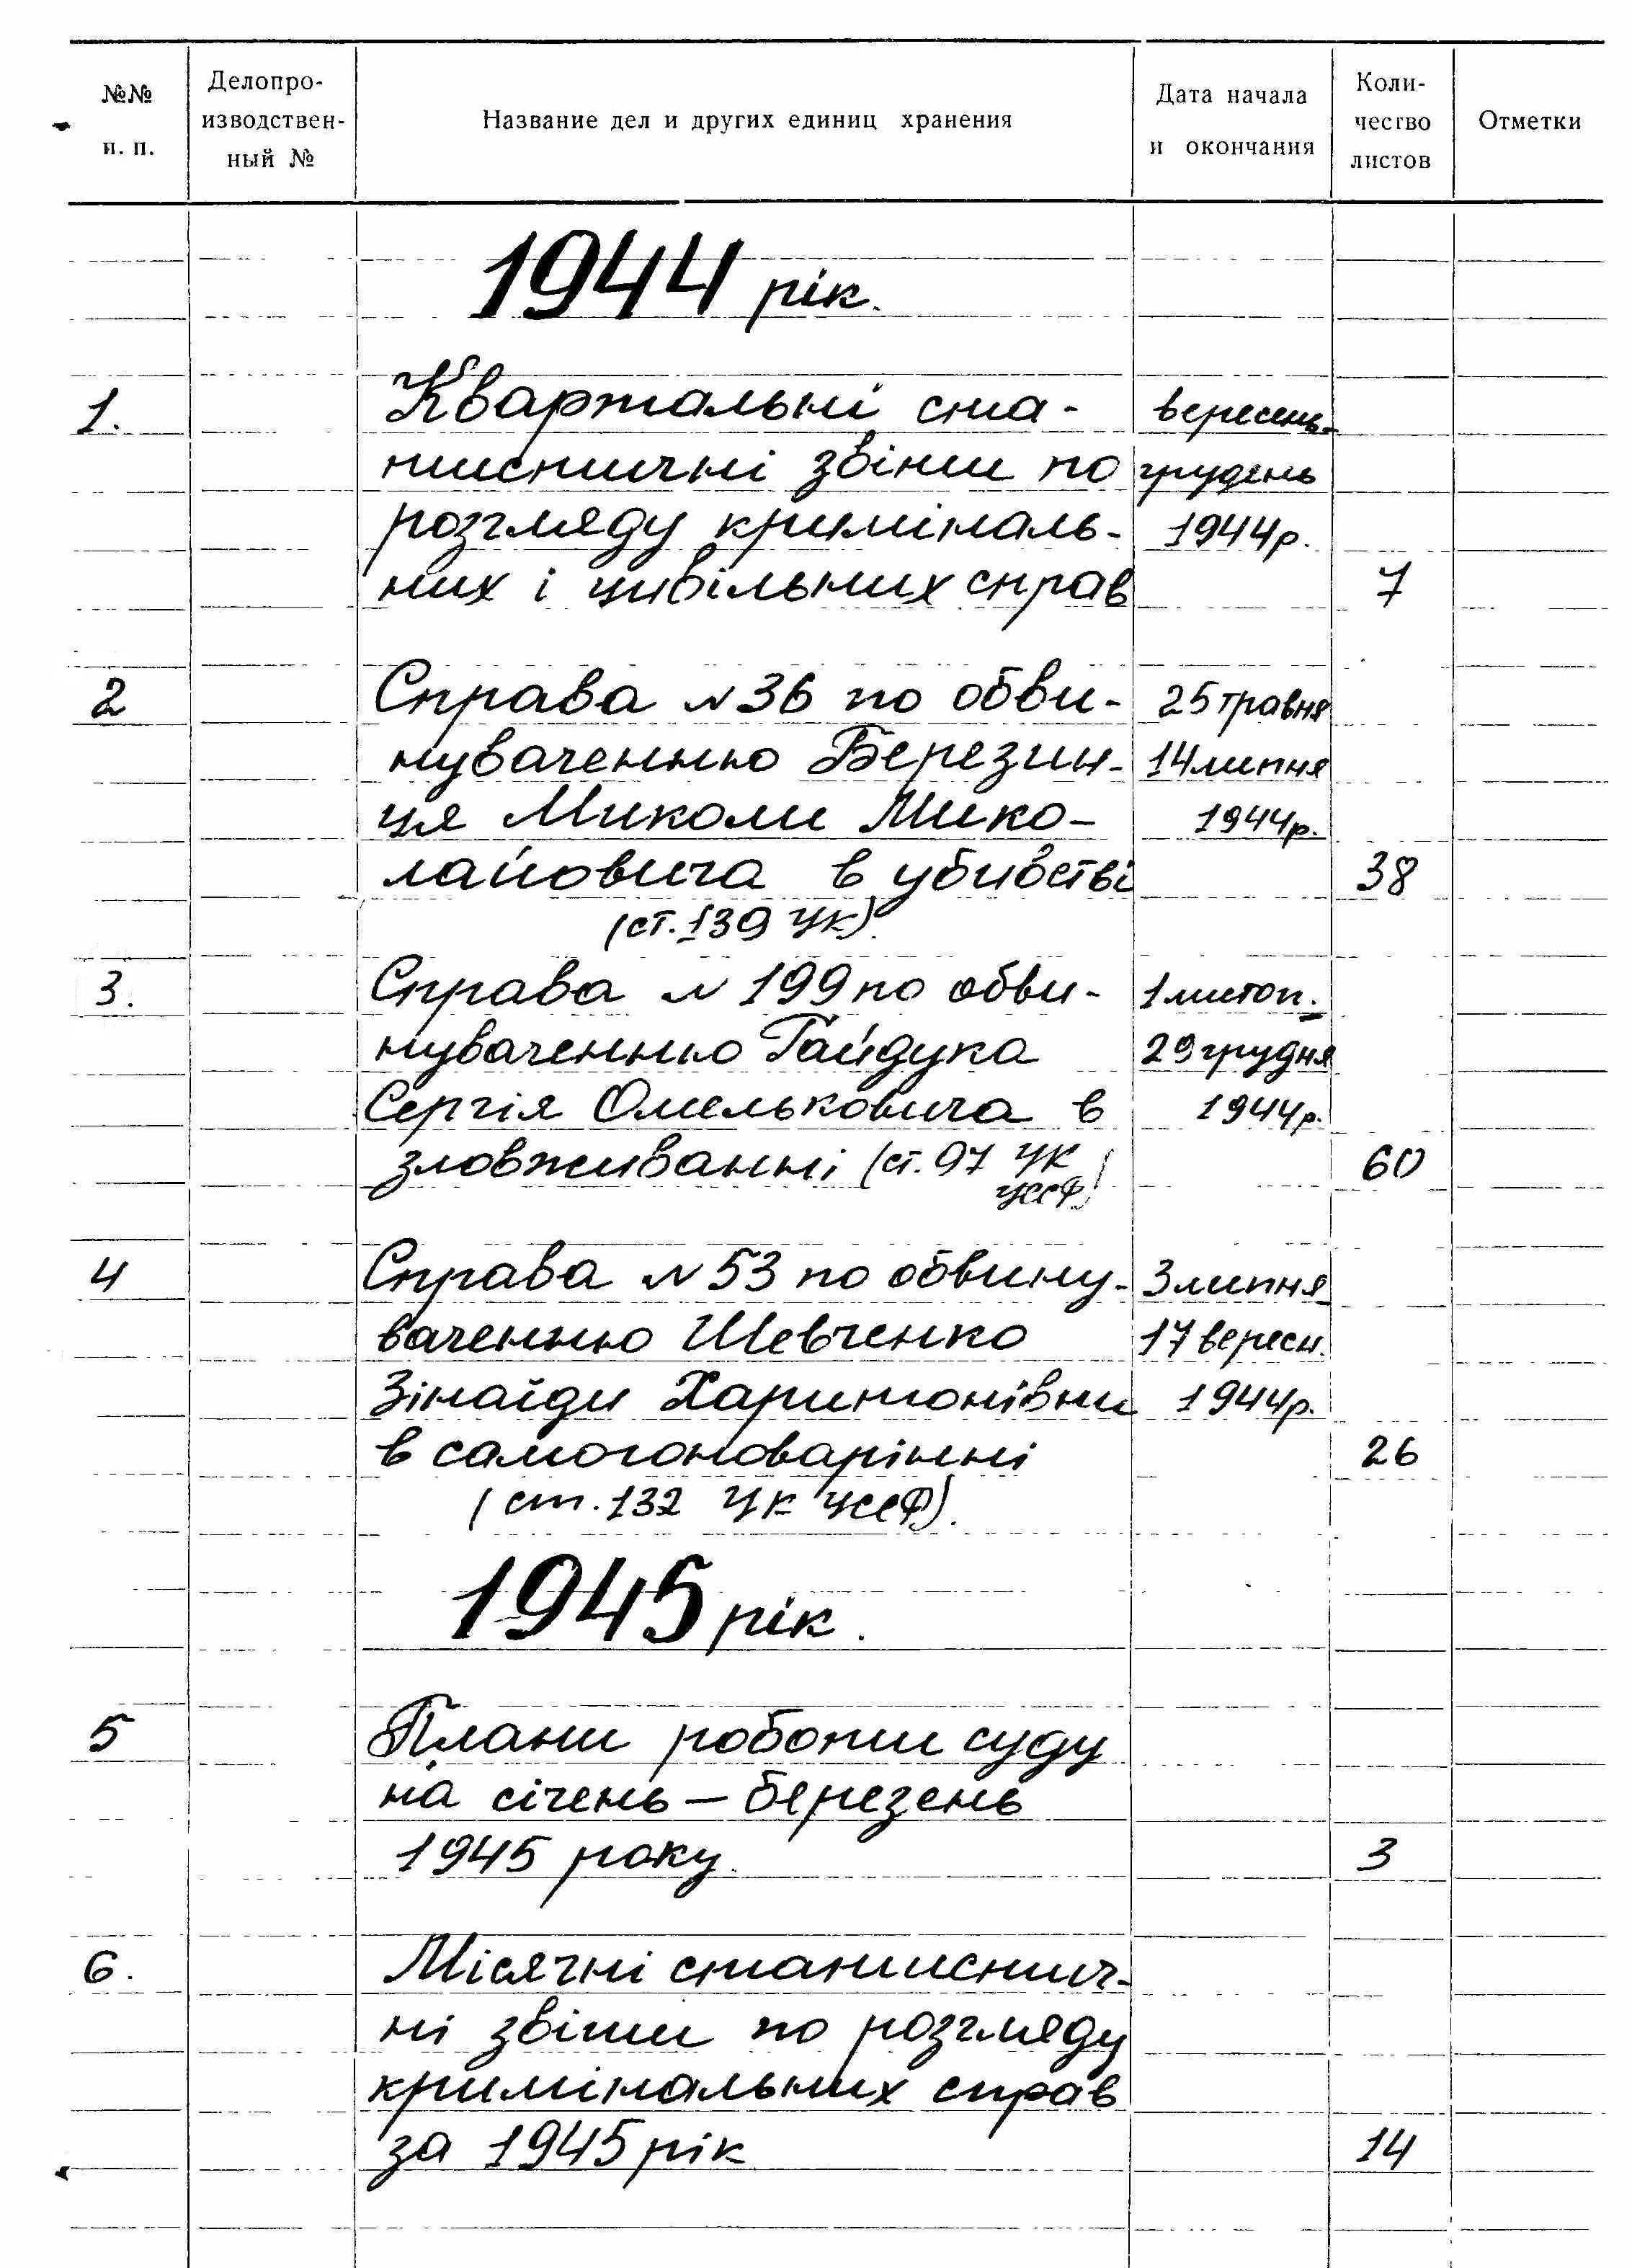 №№ п. п.
Делопро-
изводствен-
ный №
Название дел и других единиц хранения
Дата начала
и окончания
Коли-
чество
листов
Отметки
1944 рік.
1. Квартальні ста- вересень-
тистичні звіти по грудень
розгляду криміналь- 1944р.
них і цивільних справ 7
2 Справа №36 по обви- 25 травня
нуваченню Березин- 14 липня
ця Миколи Мико- 1944р.
лайовича в убивстві 38
(ст. 139 УК).
3. Справа № 199 по обви- 1 листоп.-
нуваченню Гайдука 29 грудня
Сергія Омельковича в 1944р.
зловживанні (ст. 97 УК 60
УССР)
4 Справа №53 по обвину- 3 липня
ваченню Шевченко 17 вересн.
Зінаїди Харитонівни 1944р.
в самогоноварінні 26
(ст. 132 УК УССР).
1945 рік.
5 Плани роботи суду
на січень – березень
1945 року. 3
6. Місячні статистич-
ні звіти по розгляду
кримінальних справ
за 1945 рік 14